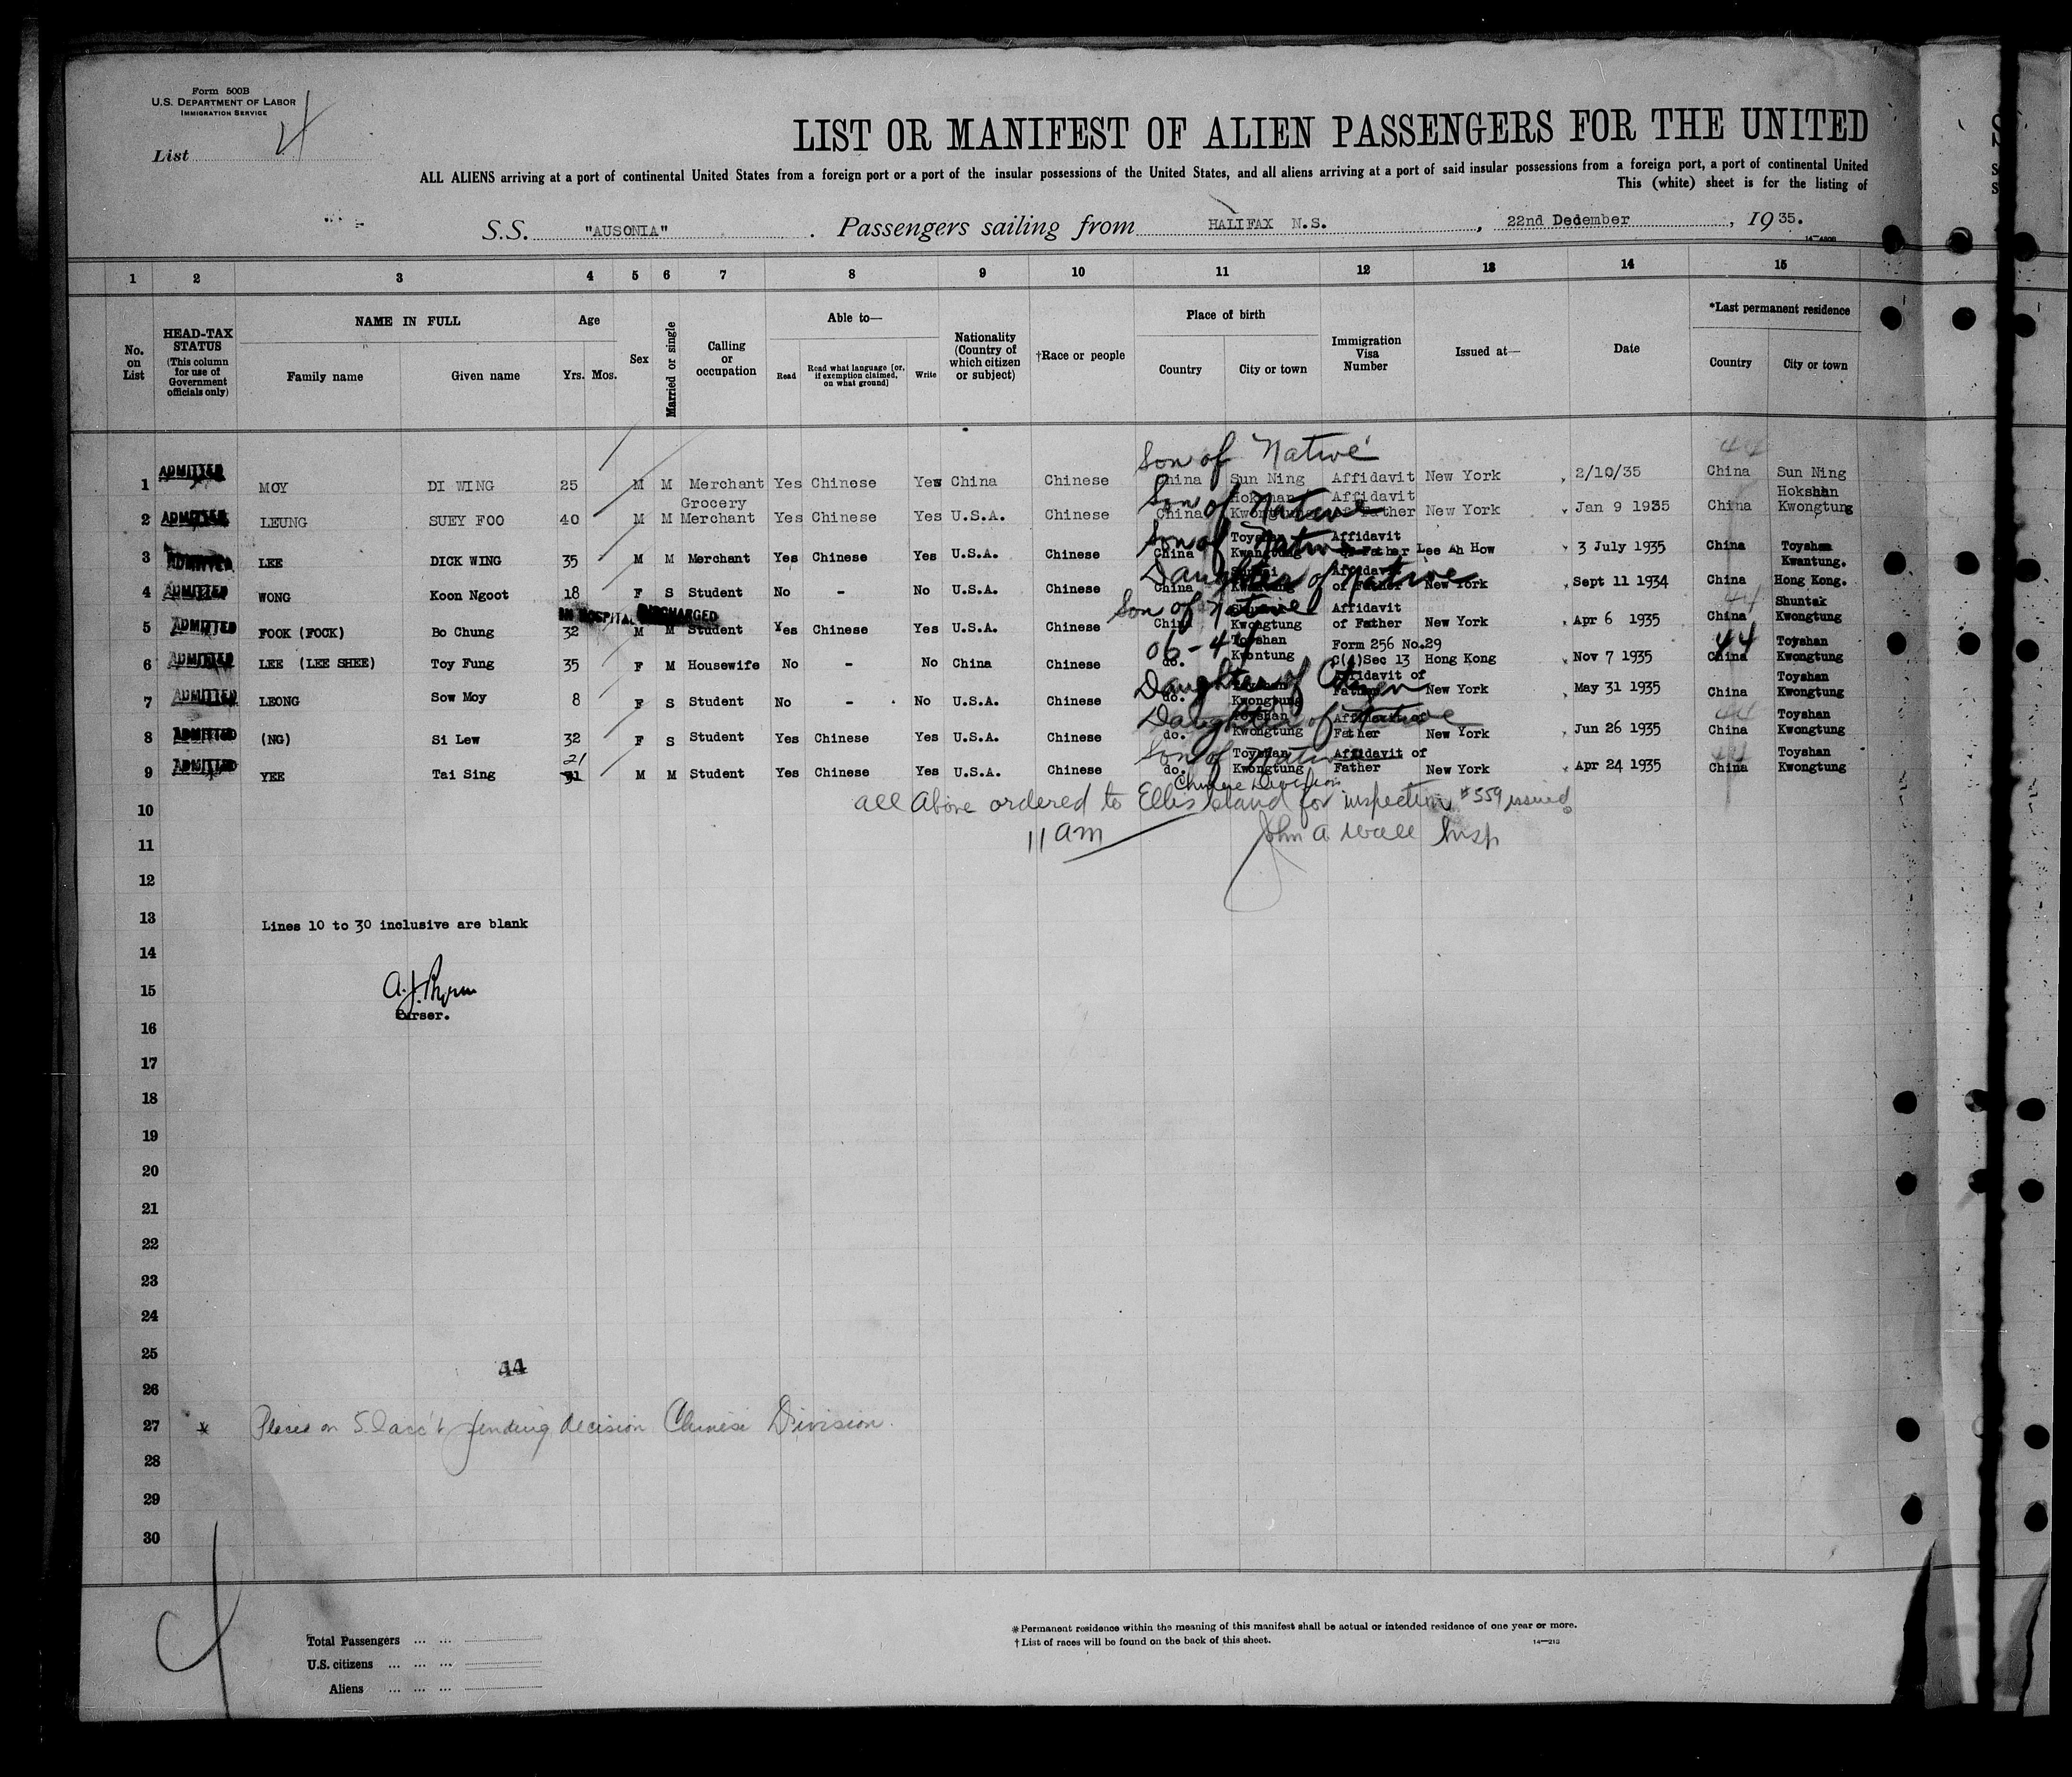 Form 500B
U.S. DEPARTMENT OF LABOR
IMMIGRATION SERVICE
List 4
LIST OR MANIFEST OF ALIEN PASSENGERS FOR THE UNITED
ALL ALIENS arriving at a port of continental United States from a foreign port or a port of the insular possessions of the United States, and all aliens arriving at a port of said insular possessions from a foreign port, a port of continental United
This (white) sheet is for the listing of
S.S. "AUSONIA" . Passengers sailing from HALIFAX N.S. , 22nd Dedember , 19 35.
1 2 3 4 5 6 7 8 9 10 11 12 13 14 15
No. on List
HEAD-TAX STATUS (This column for use of Government officials only)
NAME IN FULL
Family name Given name
Age
Yrs. Mos.
Sex
Married or single
Calling or occupation
Able to—
Read
Read what language [or, if exemption claimed, on what ground]
Write
Nationality (Country of which citizen or subject)
†Race or people
Place of birth
Country City or town
Immigration Visa Number
Issued at—
Date
*Last permanent residence
Country City or town
Son of Native 44
1 ADMITTED MOY DI WING 25 M M Merchant Yes Chinese Yes China Chinese China Sun Ning Affidavit New York 2/10/35 China Sun Ning
Son of Native
2 ADMITTED LEUNG SUEY FOO 40 M M Grocery Merchant Yes Chinese Yes U.S.A. Chinese China Hokshan Kwongtung Affidavit of Father New York Jan 9 1935 China Hokshan Kwongtung
Son of Native
3 ADMITTED LEE DICK WING 35 M M Merchant Yes Chinese Yes U.S.A. Chinese China Toyshan Kwangtung Affidavit of Father Lee Ah How 3 July 1935 China Toyshan Kwantung.
Daughter of Native
4 ADMITTED WONG Koon Ngoot 18 F S Student No - No U.S.A. Chinese China Affidavit of Father New York Sept 11 1934 China Hong Kong.
IN HOSPITAL DISCHARGED Son of Native 44
5 ADMITTED FOOK (FOCK) Bo Chung 32 M M Student Yes Chinese Yes U.S.A. Chinese China Kwongtung Affidavit of Father New York Apr 6 1935 China Shuntak Kwongtung
06-44 44
6 ADMITTED LEE (LEE SHEE) Toy Fung 35 F M Housewife No - No China Chinese do. Toyshan Kwontung Form 256 No.29 C(4)Sec 13 Hong Kong Nov 7 1935 China Toyshan Kwongtung
Daughter of Citizen
7 ADMITTED LEONG Sow Moy 8 F S Student No - No U.S.A. Chinese do. Toyshan Kwongtung Affidavit of Father New York May 31 1935 China Toyshan Kwongtung
Daughter of Native 44
8 ADMITTED (NG) Si Lew 32 F S Student Yes Chinese Yes U.S.A. Chinese do. Toyshan Kwongtung Affidavit of Father New York Jun 26 1935 China Toyshan Kwongtung
21 Son of Native 44
9 ADMITTED YEE Tai Sing 31 M M Student Yes Chinese Yes U.S.A. Chinese do. Toyshan Kwongtung Affidavit of Father New York Apr 24 1935 China Toyshan Kwongtung
Chinese Division
10 all above ordered to Ellis Island for inspection #559 issued
11 11 am John A Wall Insp
12
13 Lines 10 to 30 inclusive are blank
14
15 A.J.
Purser.
16
17
18
19
20
21
22
23
24
25
44
26
27 * Placed on acc't pending decision Chinese Division.
28
29
30
4
Total Passengers ... ...
U.S. citizens ... ... ...
Aliens ... ... ...
*Permanent residence within the meaning of this manifest shall be actual or intended residence of one year or more.
†List of races will be found on the back of this sheet. 14—213